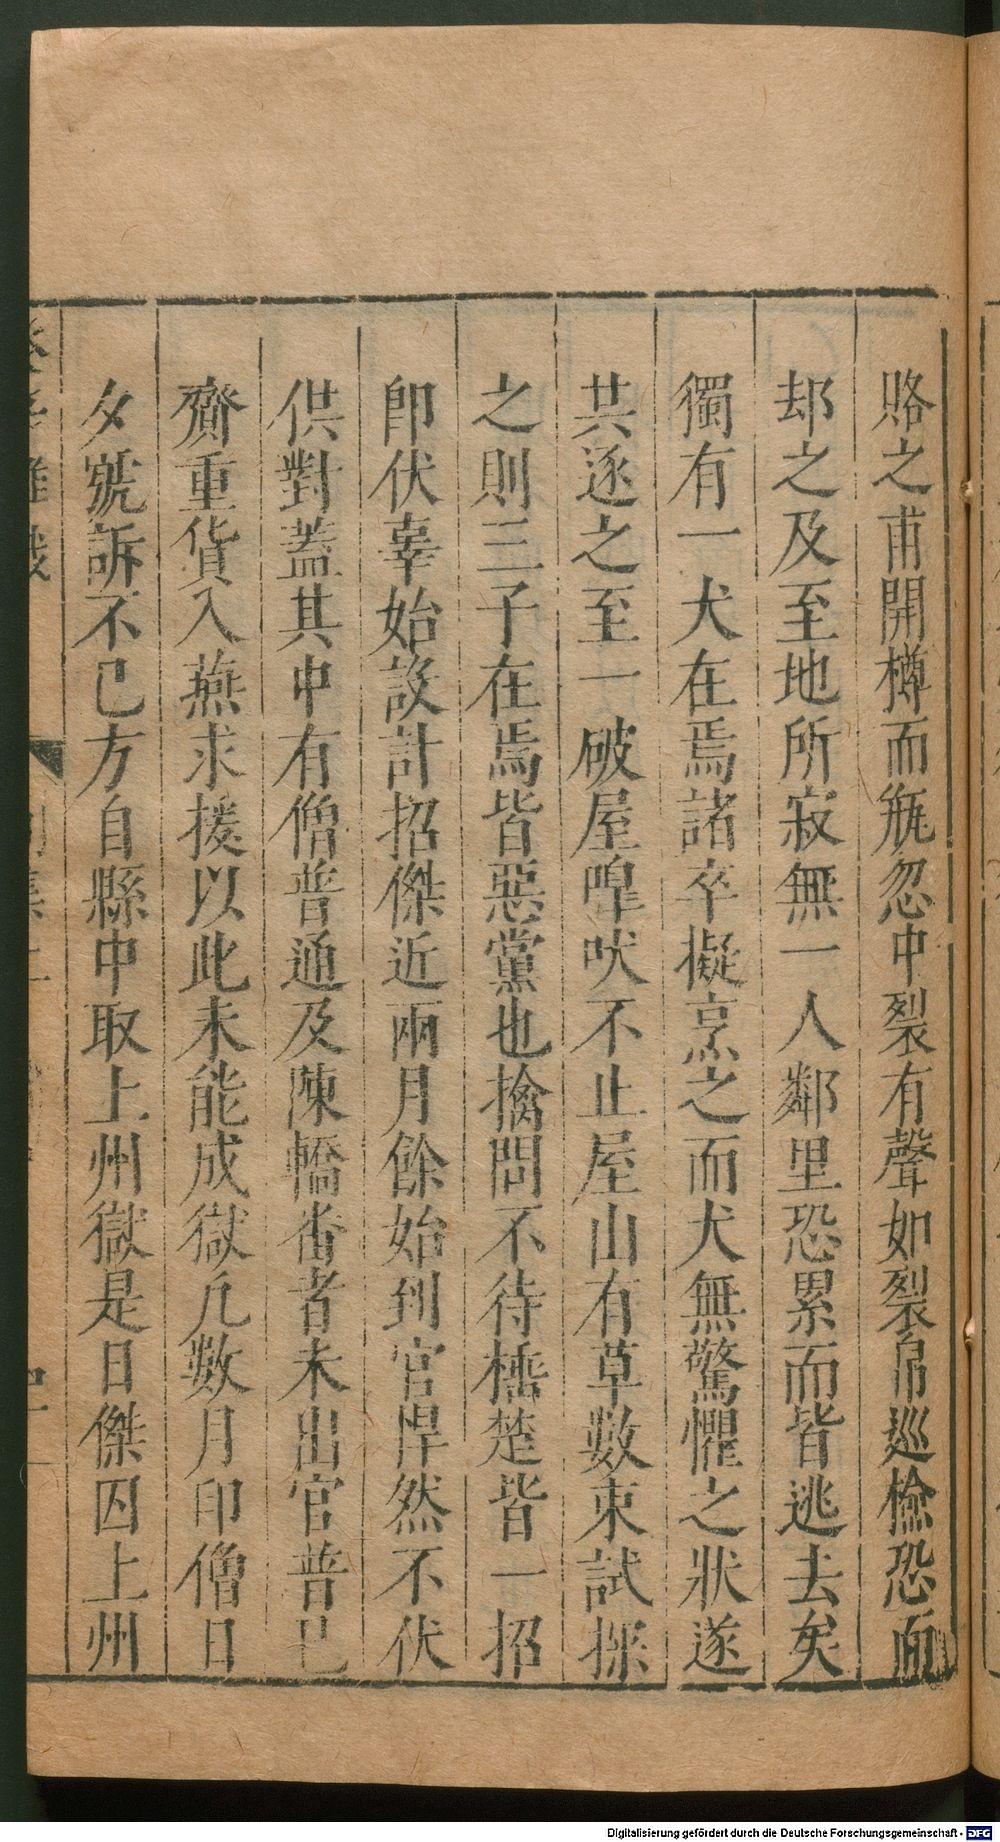 賂之甫開樽而瓶忽中裂有聲如裂帛巡檢恐而
却之及至地所寂無一人鄰里恐累而皆逃去矣
獨有一犬在焉諸卒擬烹之而犬無驚懼之狀遂
共逐之至一破屋嘷吠不止屋山有草數束試探
之則三子在焉皆惡黨也擒問不待棰楚皆一招
即伏辜始設計招傑近兩月餘始到官悍然不伏
供對蓋其中有僧普通及陳轎畨者未出官普已
齎重貨入燕求援以此未能成獄凡數月印僧日
夕號訴不已方自縣中取上州獄是日傑囚上州
癸辛雜識
Digitalisierung gefördert durch die Deutsche Forschungsgemeinschaft - DFG